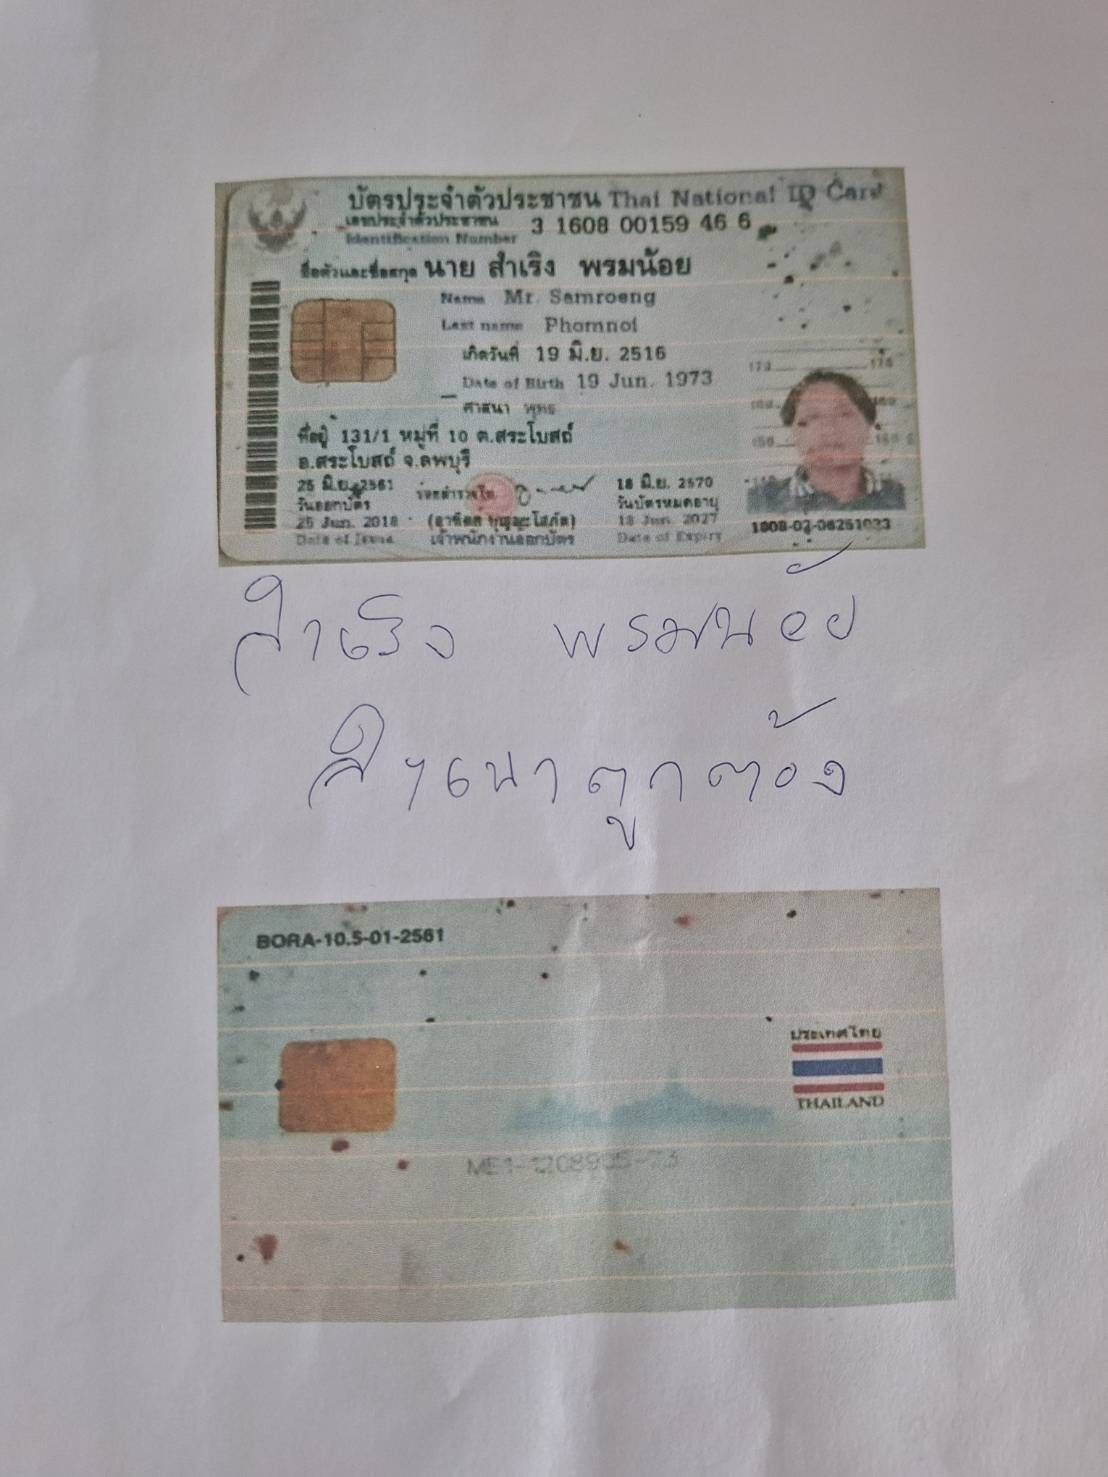 บัตรประจำตัวประชาชน Thai National ID Card
เลขประจำตัวประชาชน
Identification Number 3 1608 00159 46 6
ชื่อตัวและชื่อสกุล นาย สำเริง พรมน้อย
Name Mr. Samroeng
Last name Phomnoi
เกิดวันที่ 19 มิ.ย. 2516
Date of Birth 19 Jun. 1973
ศาสนา พุทธ
ที่อยู่ 131/1 หมู่ที่ 10 ต.สระโบสถ์
อ.สระโบสถ์ จ.ลพบุรี
25 มิ.ย. 2561
วันออกบัตร
25 Jun. 2018
Date of Issue
ร้อยตำรวจโท
เจ้าพนักงานออกบัตร
18 มิ.ย. 2570
วันบัตรหมดอายุ
18 Jun. 2027
Date of Expiry
170 170
160 160
150 150
1608-02-06251033
สำเริง พรมน้อย
สำเนาถูกต้อง
BORA-10.5-01-2561
ประเทศไทย
THAILAND